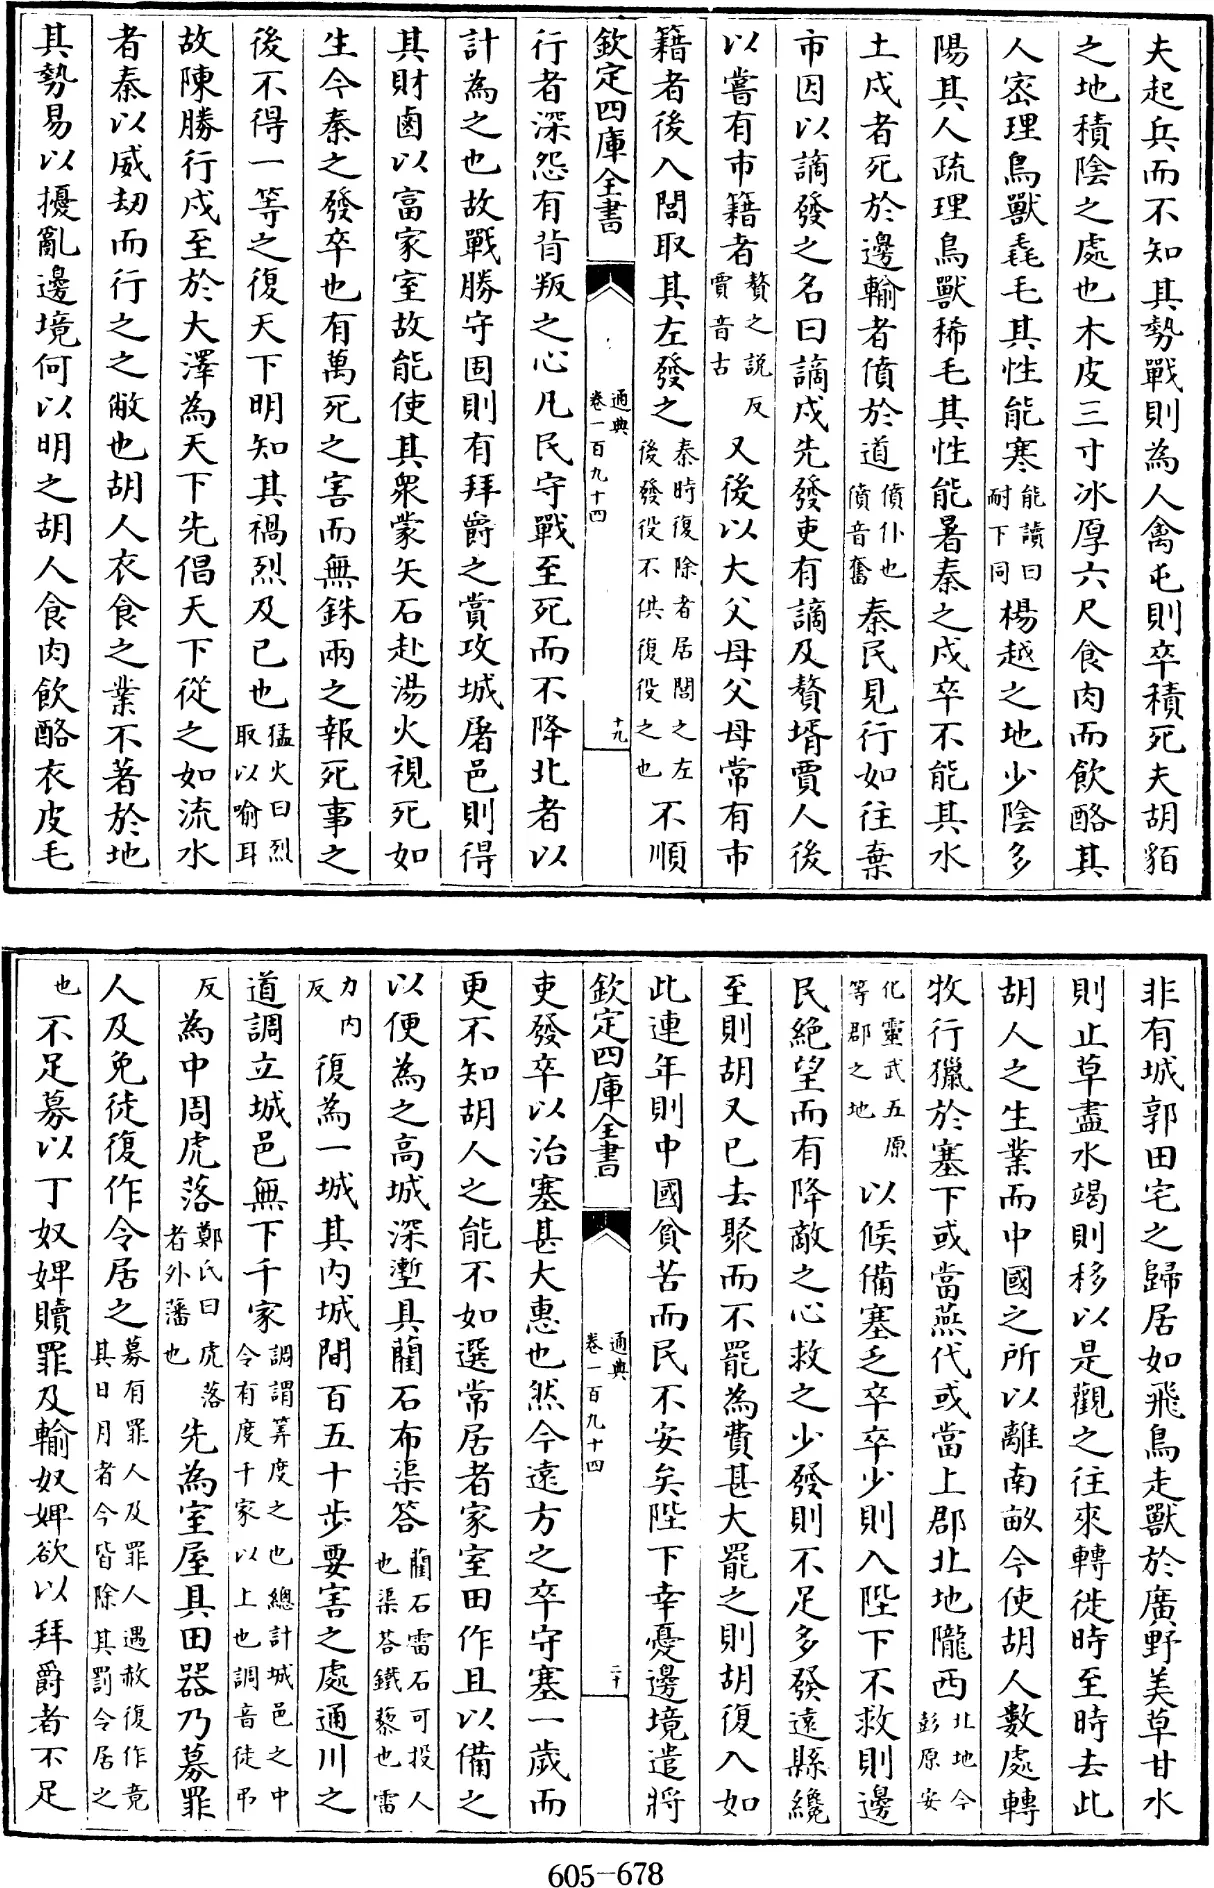 夫起兵而不知其勢戰則為人禽屯則卒積死夫胡貊
之地積陰之處也木皮三寸冰厚六尺食肉而飲酪其
人密理鳥獸毳毛其性能寒能讀曰耐下同楊越之地少陰多
陽其人疏理鳥獸稀毛其性能暑秦之戍卒不能其水
土戍者死於邊輸者僨於道僨仆也僨音奮秦民見行如往棄
市因以謫發之名曰謫戍先發吏有謫及贅壻賈人後
以嘗有市籍者贅之説反賈音古又後以大父母父母常有市
籍者後入閭取其左發之秦時復除者居閭之左後發役不供復役之也不順
欽定四庫全書 通典卷一百九十四 十九
行者深怨有背叛之心凡民守戰至死而不降北者以
計為之也故戰勝守固則有拜爵之賞攻城屠邑則得
其財鹵以富家室故能使其衆蒙矢石赴湯火視死如
生今秦之發卒也有萬死之害而無銖兩之報死事之
後不得一等之復天下明知其禍烈及已也猛火曰烈取以喻耳
故陳勝行戍至於大澤為天下先倡天下從之如流水
者秦以威劫而行之之敝也胡人衣食之業不著於地
其勢易以擾亂邊境何以明之胡人食肉飲酪衣皮毛
非有城郭田宅之歸居如飛鳥走獸於廣野美草甘水
則止草盡水竭則移以是觀之往來轉徙時至時去此
胡人之生業而中國之所以離南畝今使胡人數處轉
牧行獵於塞下或當燕代或當上郡北地隴西北地今彭原安
化靈武五原等郡之地以候備塞乏卒卒少則入陛下不救則邊
民絶望而有降敵之心救之少發則不足多發遠縣纔
至則胡又已去聚而不罷為費甚大罷之則胡復入如
此連年則中國貧苦而民不安矣陛下幸憂邊境遣將
欽定四庫全書 通典卷一百九十四 二十
吏發卒以治塞甚大惠也然今遠方之卒守塞一歲而
更不知胡人之能不如選常居者家室田作且以備之
以便為之高城深塹具藺石布渠答藺石雷石可投人也渠荅鐵蔾也雷
力内反復為一城其内城間百五十步要害之處通川之
道調立城邑無下千家調謂筭度之也總計城邑之中令有度千家以上也調音徒弔
反為中周虎落鄭氏曰虎落者外藩也先為室屋具田器乃募罪
人及免徒復作令居之募有罪人及罪人遇赦復作竟其日月者今皆除其罰令居之
也不足募以丁奴婢贖罪及輸奴婢欲以拜爵者不足
605-678